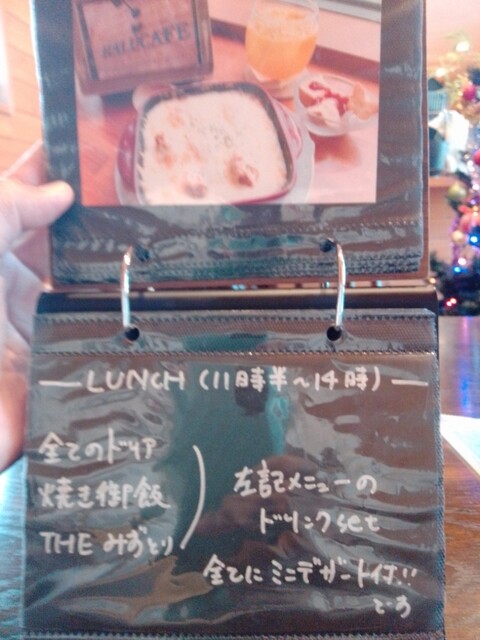 HALUCAFE
— LUNCH (11時半~14時) —
全てのドリア
焼き御飯
THE みずとり
左記メニューの
ドリンクset
全てに ミニデザート付!!
です